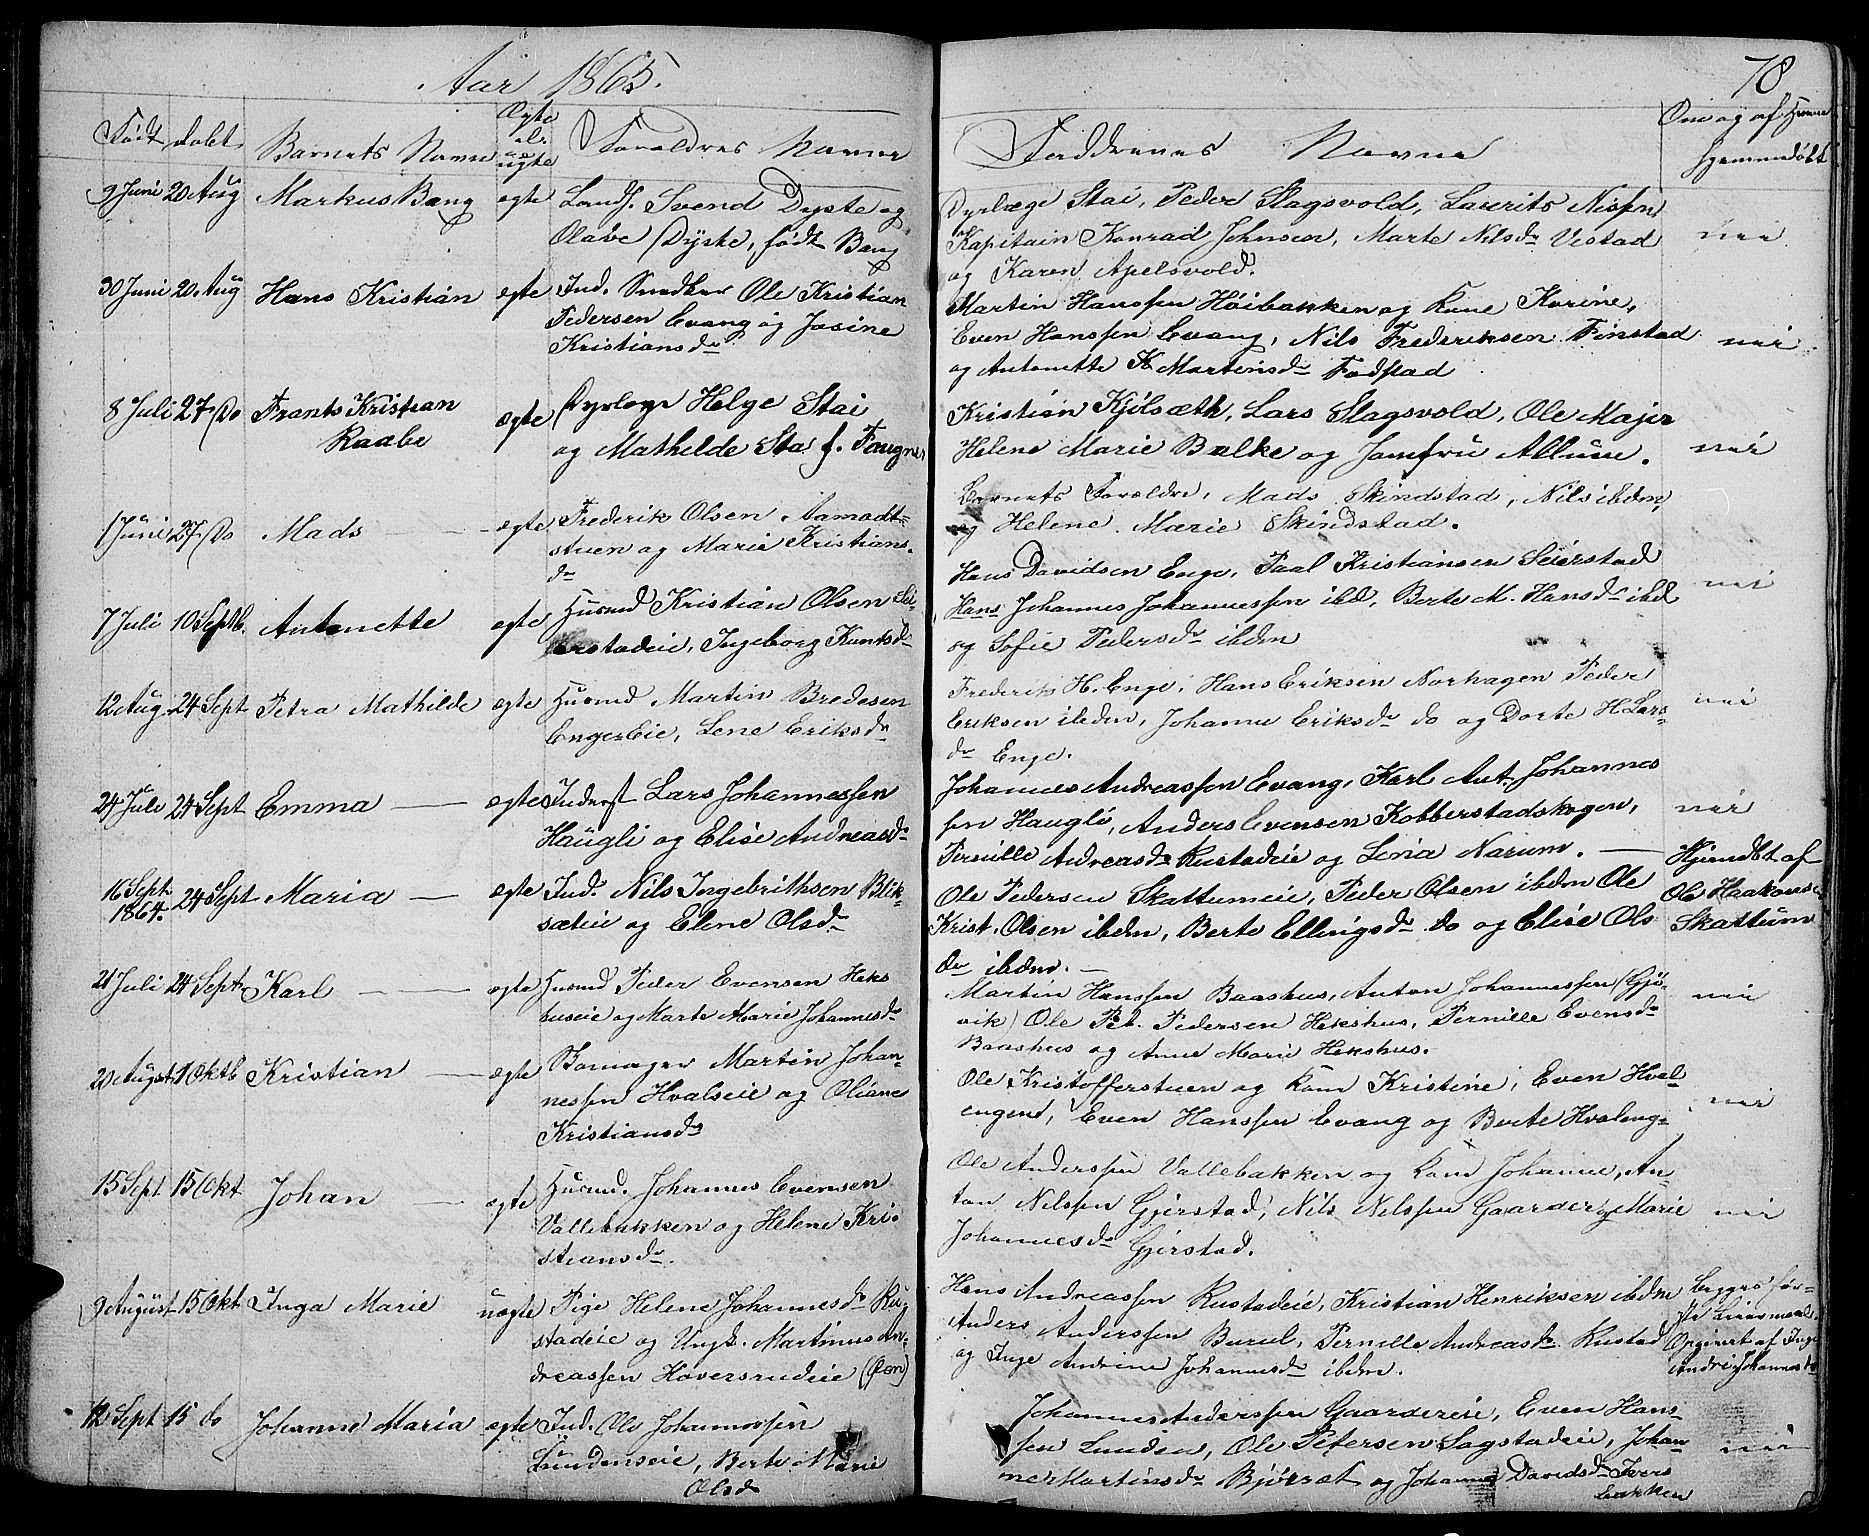 Aar 1865.
78
Født
døbt
Barnets Navn
Ægte
el.
uægte
Forældres Navne
Faddrenes Navne
Om og af hvem
hjemmedøbt
9 Juni 20 Aug Markus Bang ægte Landh. Svend Dyste og
Olave Dyste, født Bang
Dyrlæge Stai, Peder Slagsvold, Laurits Nissen,
Kapitain Konrad Johnsen, Marte Nilsdr Vestad
og Karen Apelsvold.
nei
30 Juni 20 Aug Hans Kristian ægte Ind. Snedker Ole Kristian
Pedersen Evang og Josine
Kristiansdr
Martin Hanssen Høibakken og Kone Karine,
Even Hanssen Evang, Nils Frederiksen Finstad
og Antonette K Martinsdr Fodstad
nei
8 Juli 27 Do Frants Kristian
Raabe
ægte Dyrlæge Helge Stai
og Mathilde Stai f. Faugner
Kristian Kjølsæth, Lars Slagsvold, Ole Majer
Helene Marie Balke og Jomfru Allum.
nei
1 Juni 27 Do Mads ægte Frederik Olsen Aamodt-
stuen og Marie Kristians-
dr
Barnets Forældre, Mads Skindstad, Nils ibdm,
og Helene Marie Skindstad.
7 Juli 10 Septb. Antonette ægte Husmd Kristian Olsen Sei-
erstadeie, Ingeborg Knutsdr
Hans Davidsen Enge, Paal Kristiansen Seierstad
Hans Johannes Johannessen ibd, Berte M. Hansdr ibd
og Sofie Pedersdr ibdm
nei
12 Aug 24 Sept Petra Mathilde ægte Husmd Martin Bredesen
Engeeie, Lene Eriksdr
Frederik H. Enge, Hans Eriksen Norhagen Peder
Eriksen ibdm, Johanne Eriksdr do og Dorte H Lars-
dr Enge.
nei
24 Juli 24 Sept Emma ægte Inderst Lars Johannessen
Haugli og Elise Andreasdr
Johannes Andreassen Evang, Karl Ant. Johannes
sen Haugli, Anders Evensen Kobberstadskogen,
Pernille Andreasdr Rustadeie og Lena Narum.
nei
16 Sept
1864. 24 Sept Maria ægte Ind. Nils Ingebrithsen Blik-
sætie og Elene Olsdr
Ole Pedersen Skattumeie, Peder Olsen ibdm Ole
Krist. Olsen ibdm, Berte Ellingsdr do og Elise Ols
dr ibdm.
Hjemdbt af
Ole Haakons-
Skattum
21 Juli 24 Sept. Karl ægte Husmd Peder Evensen Heks
huseie og Marte Marie Johannesdr
Martin Hanssen Baashus, Anton Johannessen (Gjø-
vik) Ole Pet. Pedersen Hekshus, Pernille Evensdr
Baashus og Anne Marie Hekshus.
nei
20 August 1 Oktb Kristian ægte Bomager Martin Johan-
nessen Hvalseie og Oliane
Kristiansdr
Ole Kristofferstuen og Kone Kristine, Even Hval-
engene, Even Hanssen Evang og Berte Hvaleng-
nei
15 Sept 15 Okt Johan ægte Husmd. Johannes Evensen
Vallebakken og Helene Kri-
stiansdr.
Ole Anderssen Vallebakken og Kone Johanne, An-
ton Nilssen Gjerstad, Nils Nilssen Gaarder og Marie
Johannesdr Gjerstad.
nei
9 August 15 Okt Inga Marie uægte Pige Helene Johannesdr Ru-
stadeie og Ungk. Martinus An-
dreassen Hoversrudeie
Hans Andreassen Rustadeie, Kristian Henriksen ibdm
Anders Anderssen Buruel, Pernille Andreasdr Rustad
og Inge Andrine Johannesdr ibdm.
Begges før-
ste Leiermaal.
Opgivet af Inge
Andri. Johannesdr
12 Sept 15 do Johanne Maria ægte Ind. Ole Johannessen
Lundenseie, Berte Marie
Olsdr
Johannes Anderssen Gaardereie, Even Hans-
sen Lunden, Ole Petersen Sagstadeie, Johan-
ne Martinsdr Bjørset og Johanne Davidsdr Ivers
bakken
nei